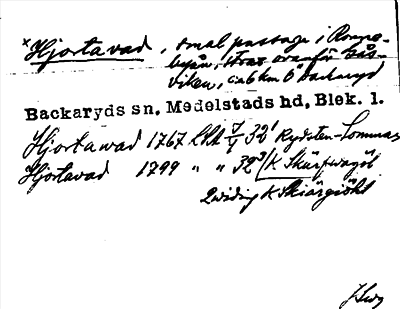 ×Hjortavad, smal passage i Rompe-
byån, strax ovanför Gås-
viken, c:a 6 km Ö Backaryd
Backaryds sn, Medelstads hd, Blek. l.
Hjortawad 1767 32¹ Rydsten-Lommas
Hjortavad 1799 " " 32³ K Skärfwagöl
K Skiärgiöhl